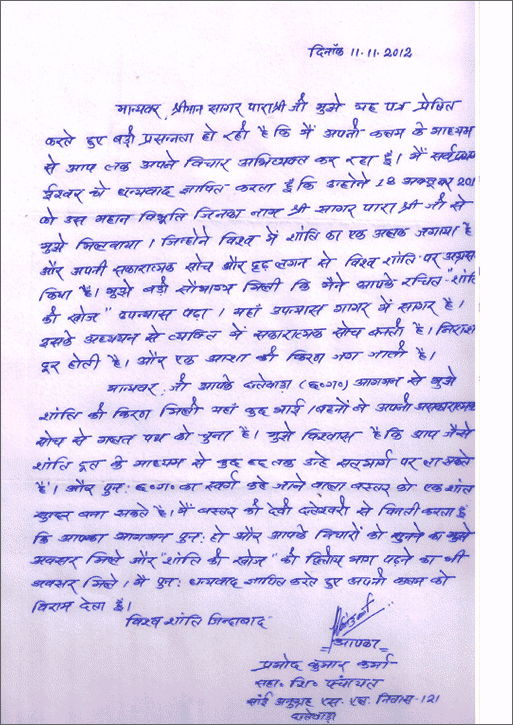 दिनाँक 11.11.2012
मान्यवर श्रीमान सागर पाराश्री जी मुझे यह पत्र प्रेषित
करते हुए बड़ी प्रसन्नता हो रही है कि मैं अपनी कलम के माध्यम
से आप तक अपने विचार अभिव्यक्त कर रहा हूँ। मैं सर्वप्रथम
ईश्वर को धन्यवाद ज्ञापित करता हूँ कि उन्होने 18 अक्टूबर 201
को उस महान विभूति जिनका नाम श्री सागर पाराश्री जी से
मुझे मिलवाया। जिन्होंने विश्व में शांति का एक अलख जगाया है
और अपनी सकारात्मक सोच और दृढ़ लगन से विश्व शांति पर
किया है। मुझे बड़ी सौभाग्य मिली कि मैंने आपके रचित "शांति
की खोज" उपन्यास पढ़ा। यहाँ उपन्यास गागर में सागर है।
इसके अध्ययन से व्यक्ति में सकारात्मक सोच बनती है। निराशा
दूर होती है। और एक आशा की किरण जग जाती है।
मान्यवर जी आपके दन्तेवाड़ा (छ०ग०) आगमन से मुझे
शांति की किरण मिली यहां कुछ भाई। बहनों ने अपनी
सोच से गलत पथ को चुना है। मुझे विश्वास है कि आप जैसे
शांति दूत के माध्यम से कुछ हद तक उन्हे सत्मार्ग पर ला सकते
है। और पुनः छ०ग० का स्वर्ग कहे जाने वाला बस्तर को एक शांत
बना सकते है। मैं बस्तर की देवी दन्तेश्वरी से विनती करता हूं
कि आपका आगमन पुनः हो और आपके विचारों को सुनने का मुझे
अवसर मिले और "शांति की खोज" की द्वितीय भाग पढ़ने का भी
अवसर मिले। मैं पुनः धन्यवाद ज्ञापित करते हुए अपनी कलम को
विराम देता हूँ।
विश्व शांति जिन्दाबाद
आपका
प्रमोद कुमार कर्मा
सहा० शि० पंचायत
साँई अनुग्रह एस. एच. निवास-121
दन्तेवाड़ा